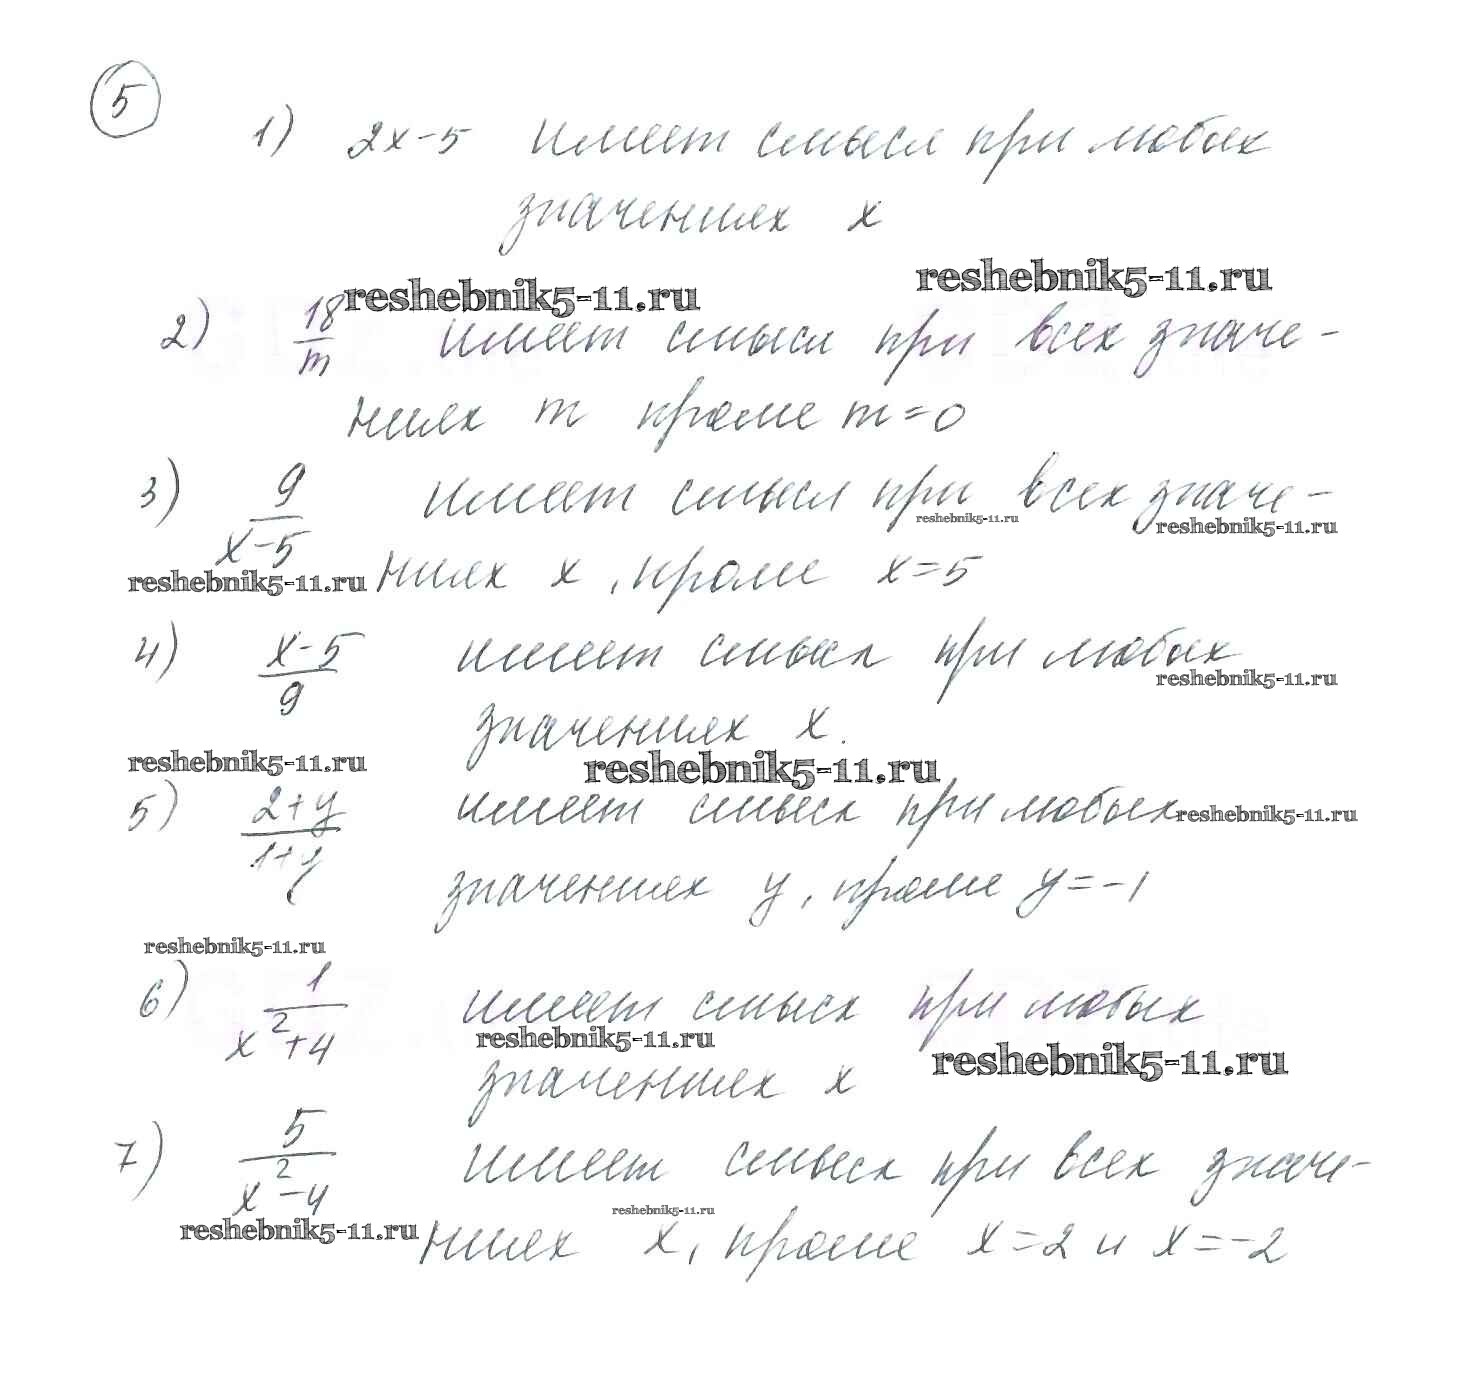 5
1) 2x-5 имеет смысл при любых
значениях x
reshebnik5-11.ru
reshebnik5-11.ru
2) 18/m имеет смысл при всех значе-
ниях m кроме m=0
3) 9/(x-5) имеет смысл при всех значе-
reshebnik5-11.ru
reshebnik5-11.ru
reshebnik5-11.ru
ниях x, кроме x=5
4) (x-5)/9 имеет смысл при любых
reshebnik5-11.ru
значениях x.
reshebnik5-11.ru
reshebnik5-11.ru
5) (2+y)/(1+y) имеет смысл при любых
reshebnik5-11.ru
значениях y, кроме y=-1
reshebnik5-11.ru
6) 1/(x²+4) имеет смысл при любых
reshebnik5-11.ru
reshebnik5-11.ru
значениях x
7) 5/(x²-4) имеет смысл при всех значе-
reshebnik5-11.ru
reshebnik5-11.ru
ниях x, кроме x=2 и x=-2